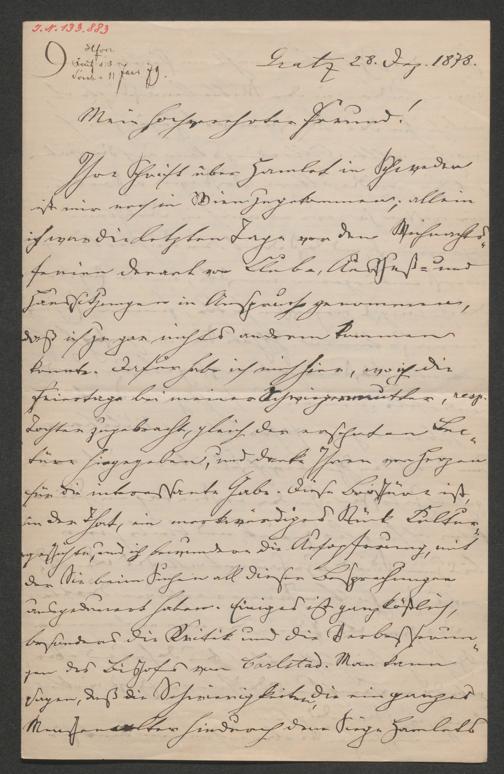 I.N. 133.883
9
Gratz 28. Dez. 1878.
Mein hochverehrter Freund!
Ihre Schrift über Hamlet in Schweden
ist mir noch in Wien zugekommen; allein
ich war die letzten Tage vor den Weihnachts-
ferien derart von Klub-, Ausschuß- und
Haussitzungen in Anspruch genommen,
daß ich zu gar nichts anderem kommen
konnte. Dafür habe ich mich hier, wo ich die
Feiertage bei meiner Schwiegermutter, resp.
Tochter zugebracht, gleich der ersehnten Lec-
türe hingegeben, und danke Ihnen von Herzen
für die interessante Gabe. Diese Broschüre ist,
in der That, ein merkwürdiges Stück Cultur-
geschichte, und ich bewundere die Aufopferung, mit
der Sie beim Suchen all dieser Besprechungen
ausgedauert haben. Einiges ist ganz köstlich,
besonders die Kritik und die Verbesserun-
gen des Bischofes von Carlstad. Man kann
sagen, daß die Schwierigkeiten, die ein ganzes
Menschenalter hindurch dem Siege Hamlets